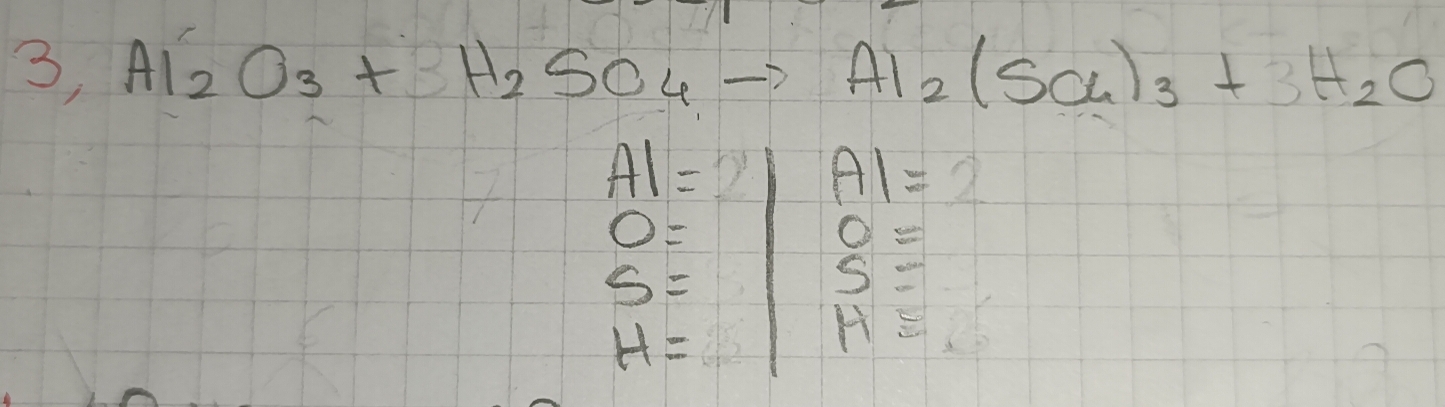 3, Al2O3 + 3H2SO4 → Al2(SO4)3 + 3H2O
Al = 2 | Al = 2
O = | O =
S = | S =
H = | H =